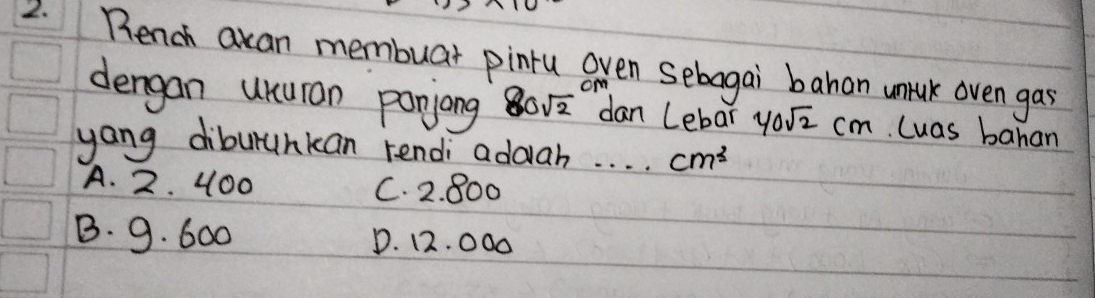 2. Rendi akan membuat pintu oven sebagai bahan untuk oven gas
dengan ukuran panjang 80√2 cm dan Lebar 40√2 cm. Luas bahan
yang diburuhkan rendi adalah .... cm²
A. 2.400 C. 2.800
B. 9.600 D. 12.000